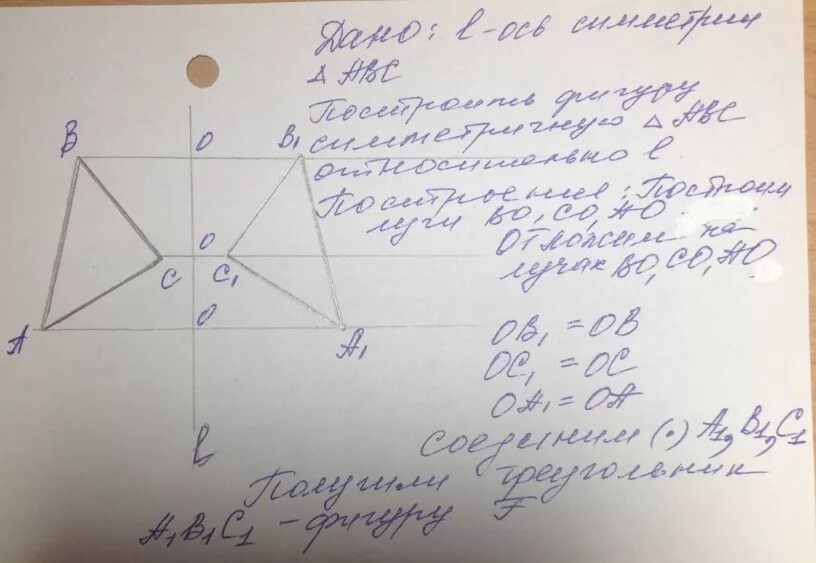 Дано: l-ось симметрии
△ ABC
Построить фигуру
симметричную △ ABC
относительно l
Построение: Построим
лучи BO, CO, AO
Отложим на
лучах BO, CO, AO
OB₁ = OB
OC₁ = OC
OA₁ = OA
соединим (·) A₁, B₁, C₁
Получили треугольник
A₁B₁C₁ - фигуру F
B
O
B₁
O
C
C₁
A
O
A₁
l